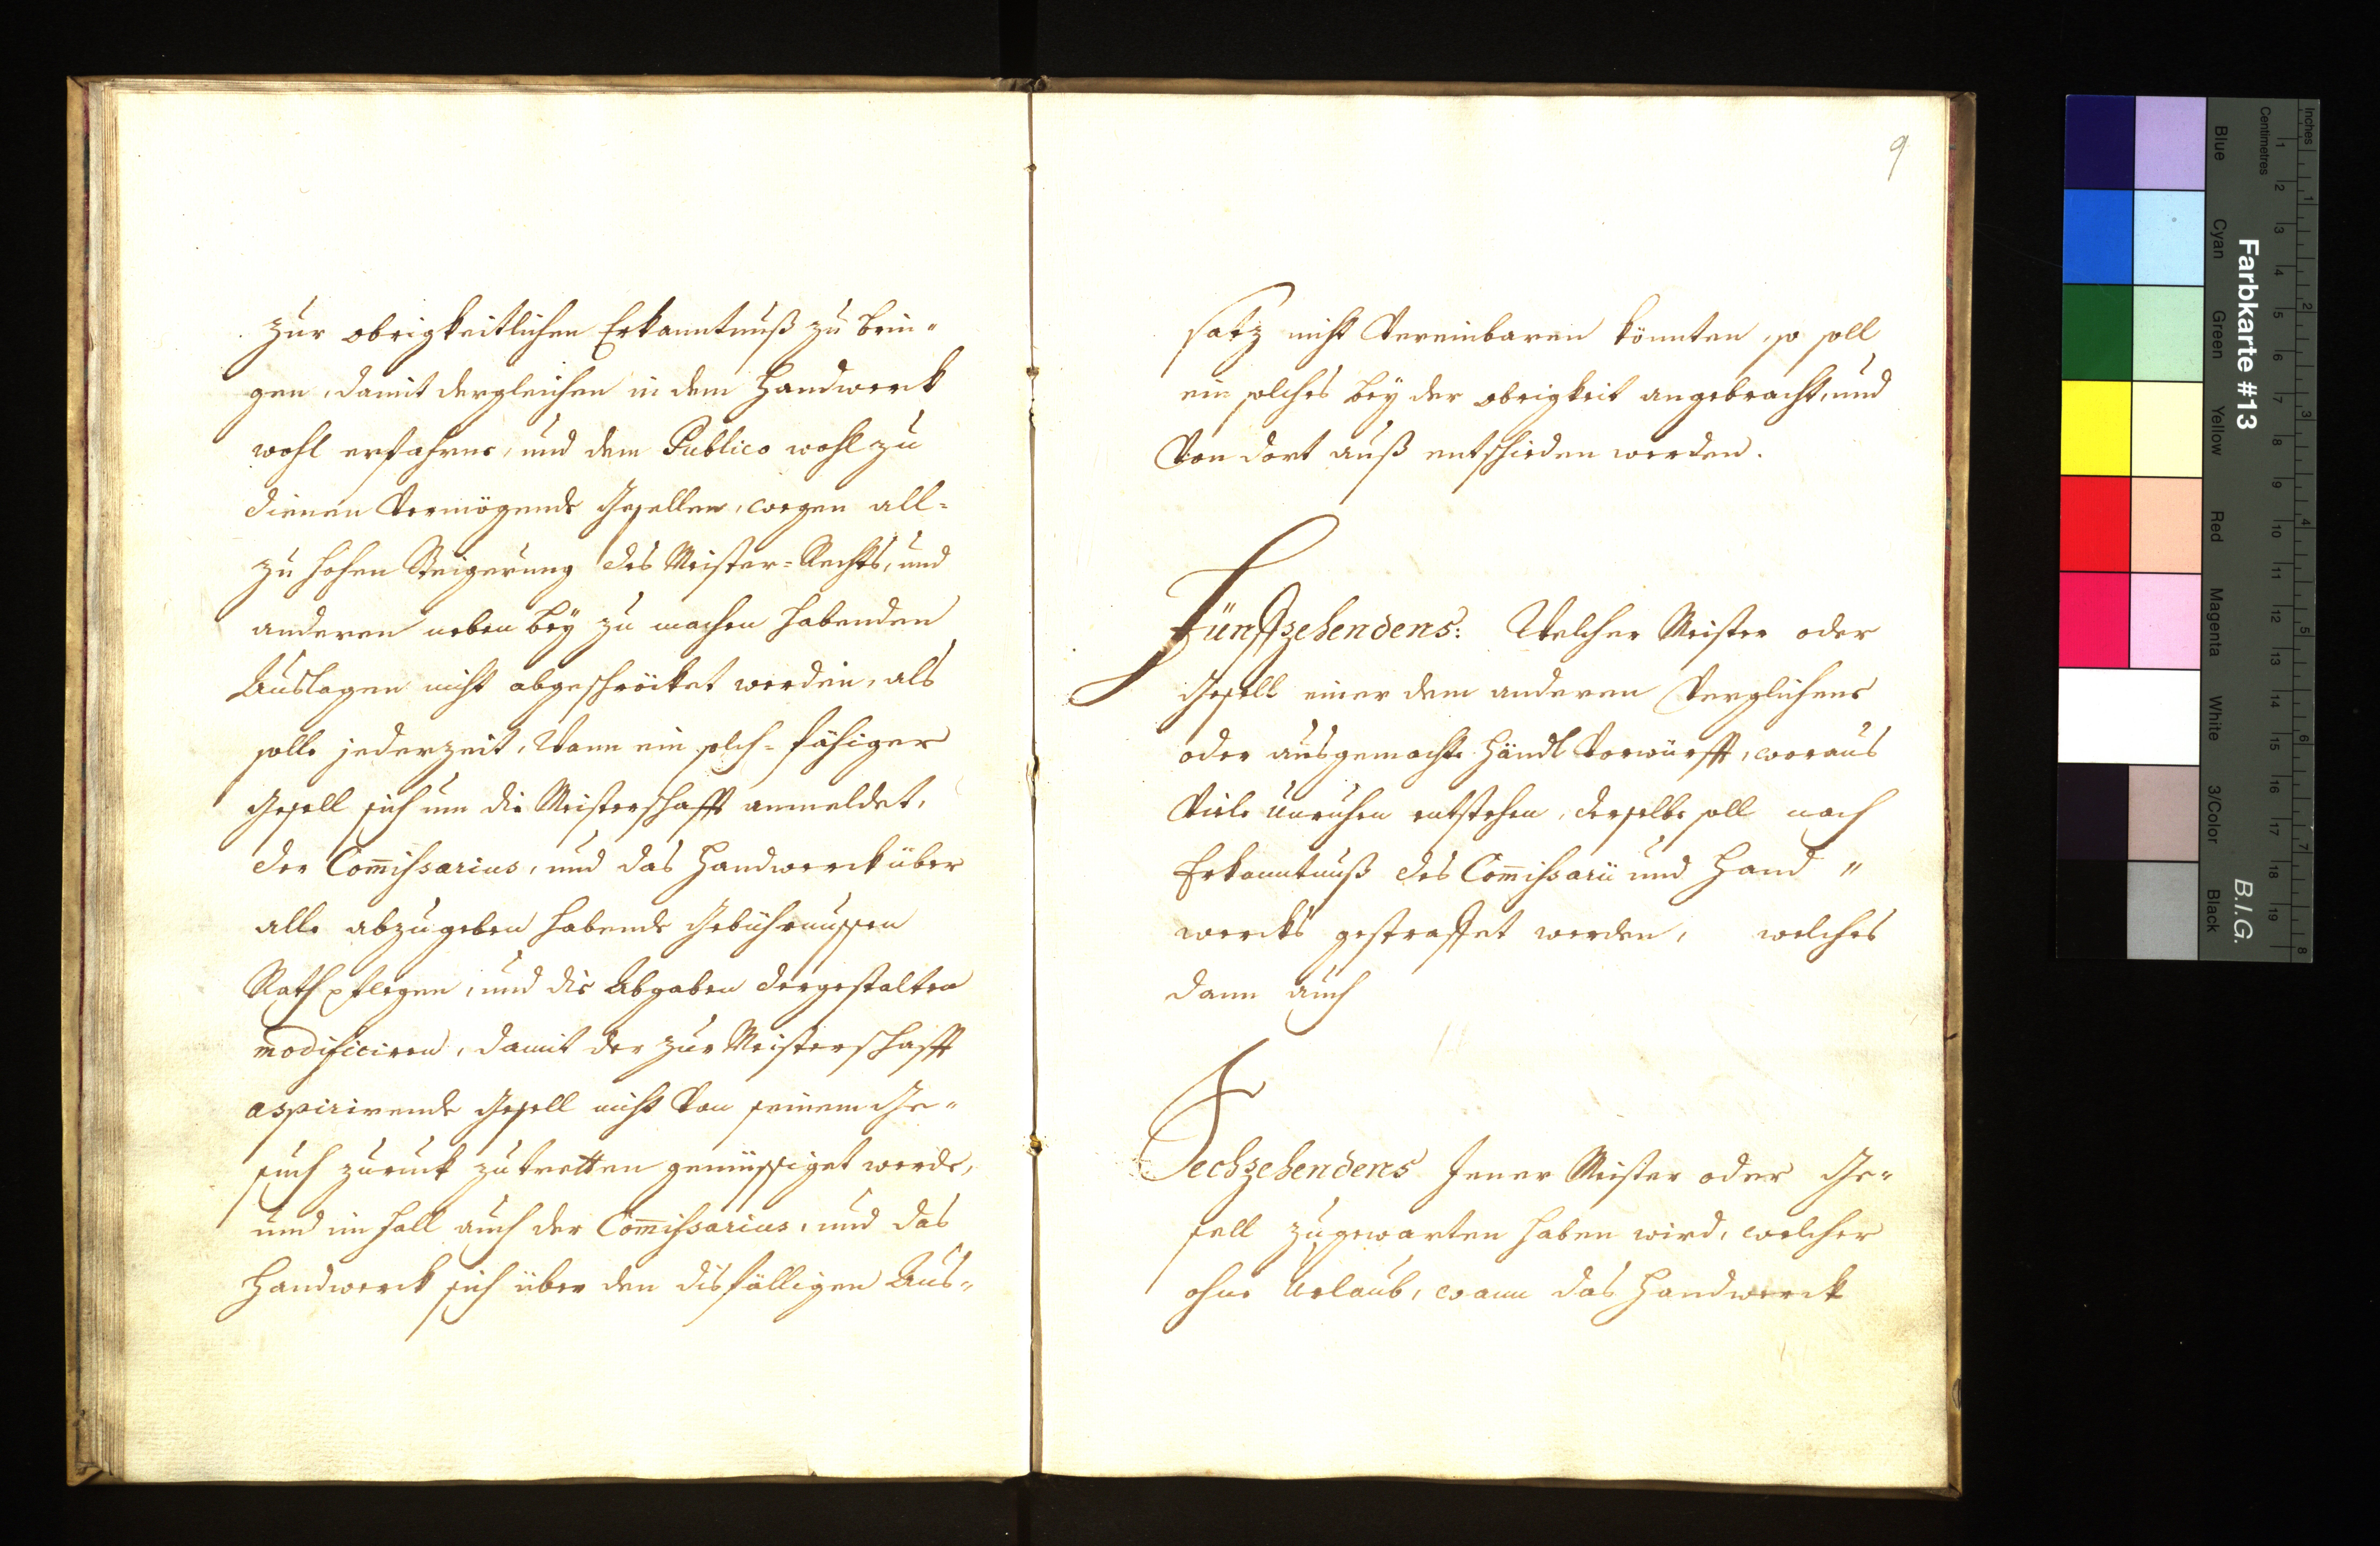 zur obrigkeitlichen Erkanntnuß zu brin"
gen, damit dergleichen in dem Handwerck
wohl erfahrne, und dem Publico wohl zu
dienen Vermögende Gesellen, wegen all=
zu hohen Steigerung des Meister=Rechts, und
anderen neben bey zu machen habenden
Auslagen nicht abgeschröcket werden, als
solle jederzeit, Wann ein solch=fähiger
Gesell sich um die Meisterschafft anmeldet,
der Com̅issarius, und das Handwerck über
alle abzugeben habende Gebührnussen
Rath pflegen, und die Abgaben dergestalten
modificiren, damit der zur Meisterschafft
aspirirende Gesell nicht Von seinem Ge"
such zuruck zutretten gemüssiget werde,
und im Fall auch der Com̅issarius, und das
Handwerck sich über den disfälligen Aus"
9
satz nicht Vereinbaren könnten, so soll
ein solches bey der obrigkeit angebracht, und
Von dort auß entschieden werden.
Fünftzehendens: Welcher Meister oder
Gesell einer dem anderen Verglichene
oder ausgemachte Händl Vorwürfft, woraus
Viele Unruhen entstehen, derselbe soll nach
Erkanntnuß des Com̅issarii und Hand "
wercks gestraffet werden, welches
dann auch
Sechzehendens Jener Meister oder Ge"
sell zugewarten haben wird, welcher
ohne Urlaub, wann das Handwerck
Farbkarte #13
B.I.G.
Inches
Centimetres
Blue
Cyan
Green
Yellow
Red
Magenta
White
3/Color
Black
1 2 3 4 5 6 7 8
1 2 3 4 5 6 7 8 9 10 11 12 13 14 15 16 17 18 19